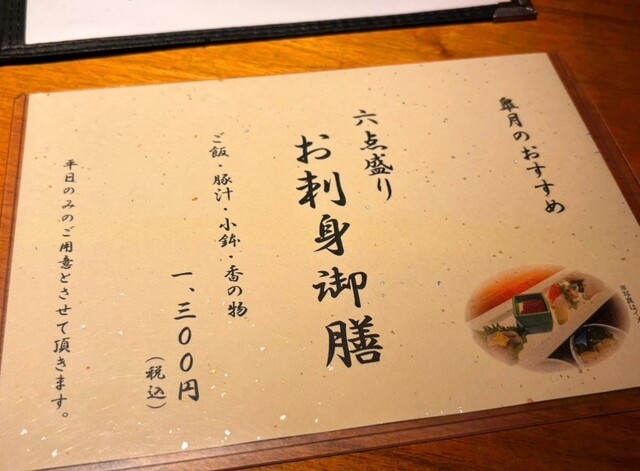 皐月のおすすめ
六点盛り
お刺身御膳
ご飯・豚汁・小鉢・香の物
一、三００円
(税込)
平日のみのご用意とさせて頂きます。